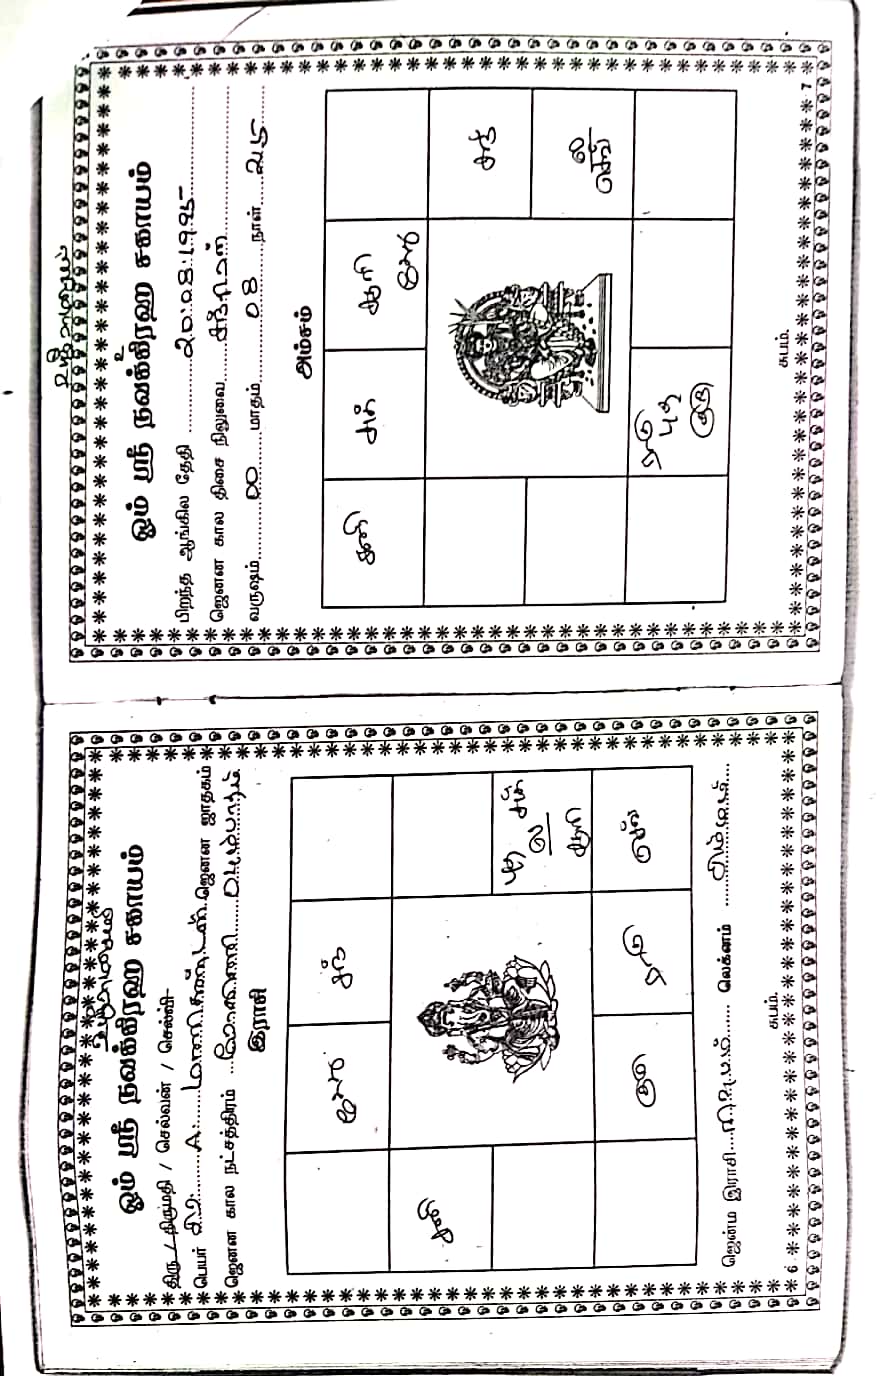 ஓம் ஸ்ரீ நவக்கிரஹ சகாயம்
திரு / திருமதி / செல்வன் / செல்வி
பெயர் சி.வி. A. மணிகண்டன் ஜெனன ஜாதகம்
ஜெனன கால நட்சத்திரம் ரோகிணி
இராசி
கேது
சந்
சனி
புத சுக்
ல
சூரி
குரு
ராகு
செவ்
ஜென்ம இராசி ரிஷபம் லெக்னம் சிம்மம்
சுபம்.
6
ஓம் ஸ்ரீ நவக்கிரஹ சகாயம்
பிறந்த ஆங்கில தேதி 20:08:1995
ஜெனன கால திசை நிலுவை சந்திரன்
வருஷம் 00 மாதம் 08 நாள்
அம்சம்
சனி
சுக்
சூரி
கேது
சந்
ல
செவ்
ராகு
புத
குரு
சுபம்.
7